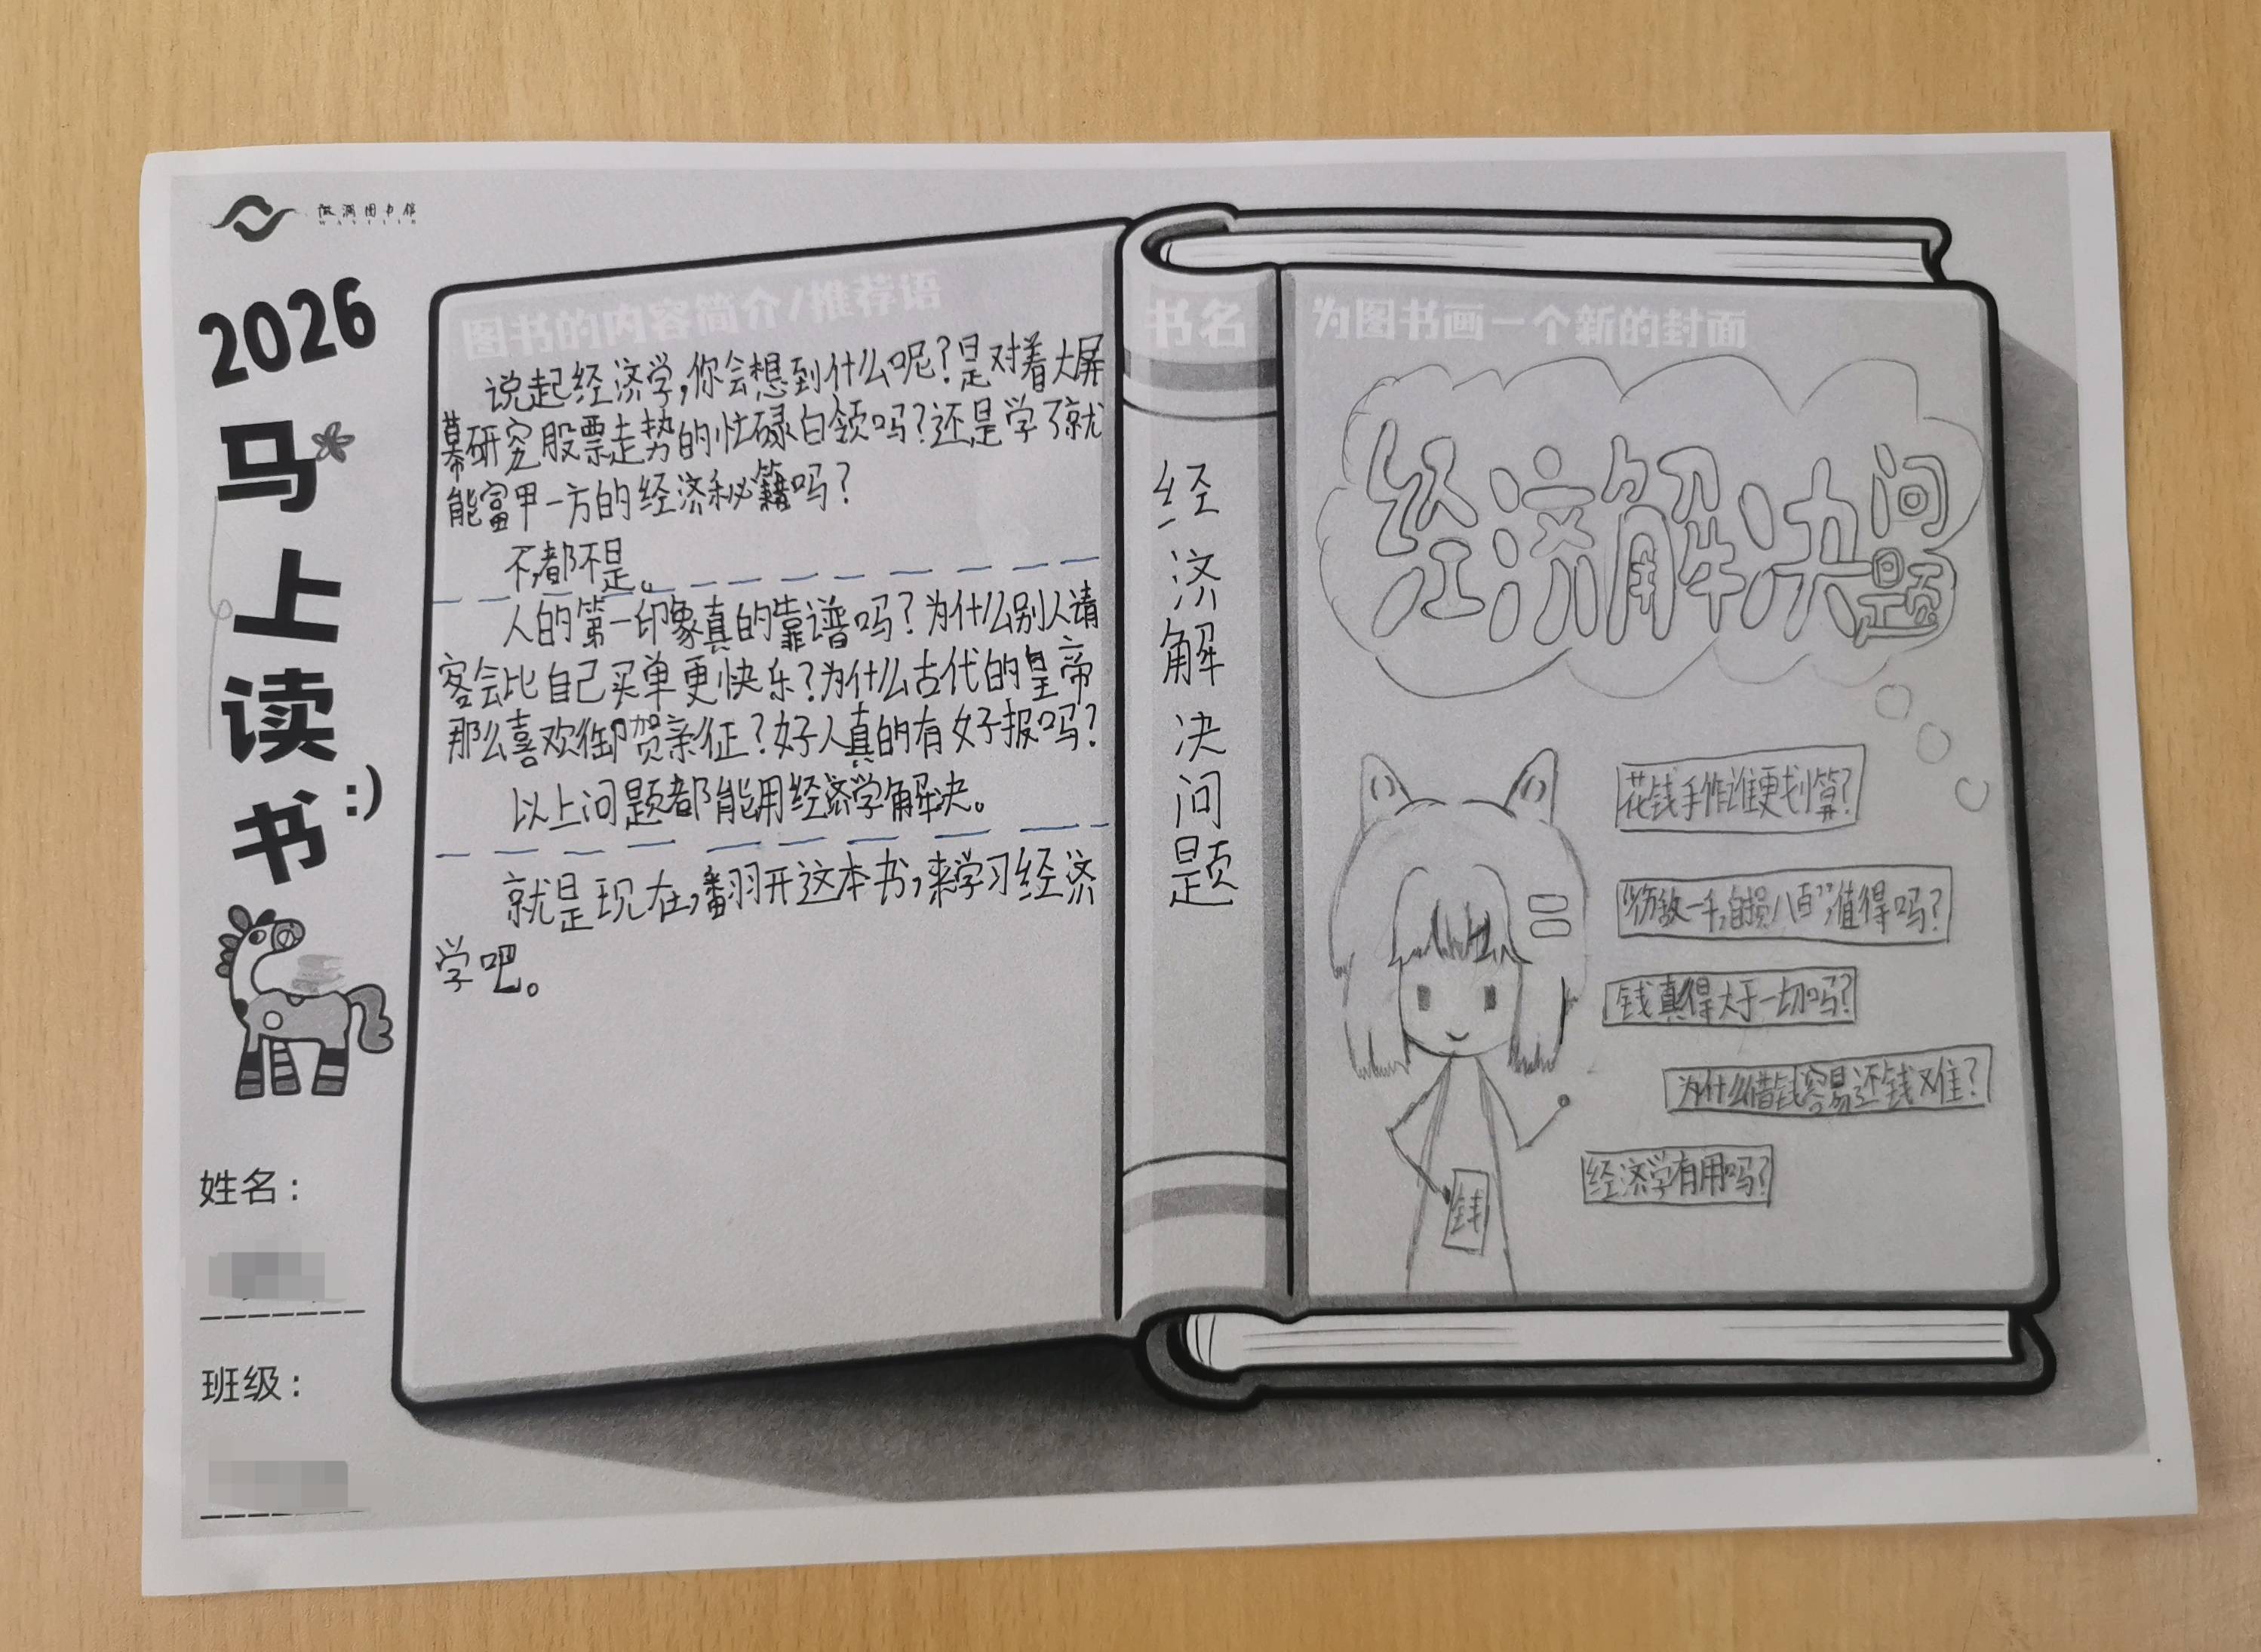 微澜图书馆
WAVELIB
2026
马
上
读
书
:)
姓名：
班级：
图书的内容简介/推荐语
说起经济学,你会想到什么呢?是对着大屏
幕研究股票走势的忙碌白领吗?还是学了就
能富甲一方的经济秘籍吗?
不,都不是。
人的第一印象真的靠谱吗?为什么别人请
客会比自己买单更快乐?为什么古代的皇帝
那么喜欢御驾亲征?好人真的有好报吗?
以上问题都能用经济学解决。
就是现在,翻开这本书,来学习经济
学吧。
书名
经济解决问题
为图书画一个新的封面
经济解决问题
花钱手作谁更划算?
"伤敌一千,自损八百",值得吗?
钱真得大于一切吗?
为什么借钱容易还钱难?
经济学有用吗?
钱